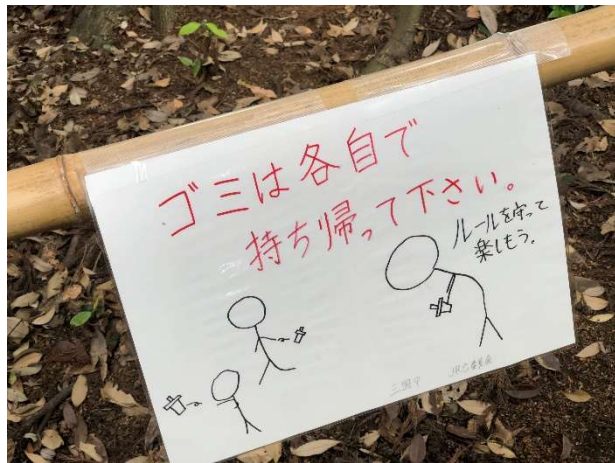 ゴミは各自で
持ち帰って下さい。
ルールを守って
楽しもう。
JRC委員会